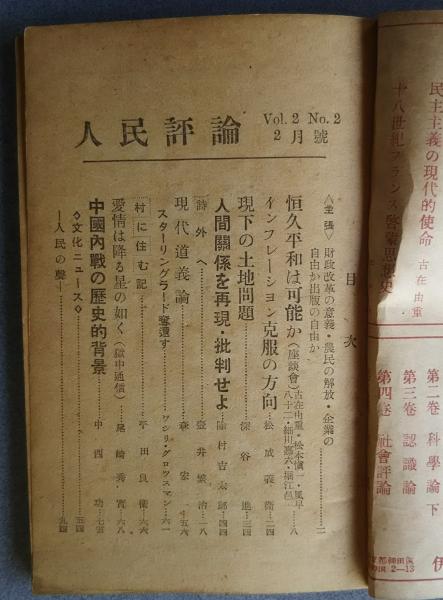 人民評論 Vol.2 No.2
2月號
目次
〈主張〉財政改革の意義・農民の解放・企業の
自由か出版の自由か……二
恒久平和は可能か(座談會)古在由重・松本愼一・風早
八十二・細川嘉六・堀江邑一……八
インフレーション克服の方向……松成義衞…二四
現下の土地問題……深谷進…三四
人間關係を再現・批判せよ……除村吉太郎…四四
詩 外へ……壺井繁治…一八
現代道義論……森宏一…五六
スターリングラード奪還す……ワシリ・グロッスマン…六一
村に住む記……平田良衞…六六
愛情は降る星の如く(獄中通信)……尾崎秀實…六八
中國內戰の歷史的背景……中西功…七五
◇文化ニュース◇……五四
―人民の聲―……九四
民主主義の現代的使命 古在由重
十八世紀フランス啓蒙思想史
第二卷 科學論 下
第三卷 認識論
第四卷 社會評論
伊
2―13